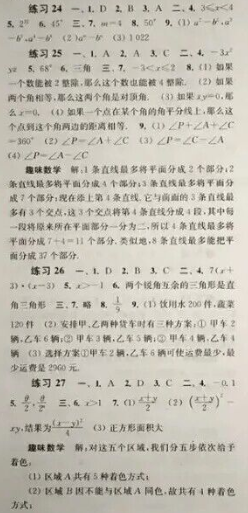 练习24 一、1. D 2. B 3. A 二、4. 3<x<4
5. 2¹⁰ 6. 45° 三、7. m=4 8. 50° 9. (1) a²-b², a³
-b³, a⁴-b⁴ (2) aⁿ-bⁿ (3) 1 022
练习25 一、1. A 2. A 3. C 二、4. -3x²
yz 5. 68° 6. 三角 三、7. -3<x≤2 8. (1) 如果
一个数能被2整除,那么这个数也能被4整除. (2) 如果
两个角相等,那么这两个角是对顶角. (3) 如果xy=0,那
么x=0. (4) 如果一个点在某个角的角平分线上,那么这
个点到这个角两边的距离相等. 9. (1) ∠P+∠A+∠C
=360° (2) ∠P=∠A+∠C (3) ∠P=∠C-∠A
(4) ∠P=∠A-∠C
趣味数学 解:1条直线最多将平面分成2个部分;2
条直线最多将平面分成4个部分;3条直线最多将平面分
成7个部分;现在添上第4条直线.它与前面的3条直线最
多有3个交点,这3个交点将第4条直线分成4段,其中每
一段将原来所在平面部分一分为二,所以4条直线最多将
平面分成7+4=11个部分.类似地,8条直线最多能把平
面分成37个部分.
练习26 一、1. D 2. B 3. C 二、4. 7(x+
3)·(x-3) 5. x>-1 6. 两个锐角互余的三角形是直
角三角形 三、7. 略 8. 1/9 9. (1) 饮用水200件,蔬菜
120件 (2) 安排甲、乙两种货车时有三种方案:①甲车2
辆,乙车6辆;②甲车3辆,乙车5辆;③甲车4辆,乙车4
辆 (3) 选择方案①甲车2辆,乙车6辆可使运费最少,最
少运费是2960元.
练习27 一、1. A 2. D 3. C 二、4. -0.1
三、6. x>1 7. (1) (x+y)/2 (2) ((x+y)/2)²-
xy,结果为(x-y)²/4 (3) 正方形面积大
趣味数学 解:对这五个区域,我们分五步依次给予
着色:
(1) 区域A共有5种着色方式;
(2) 区域B因不能与区域A同色,故共有4种着色
方式;